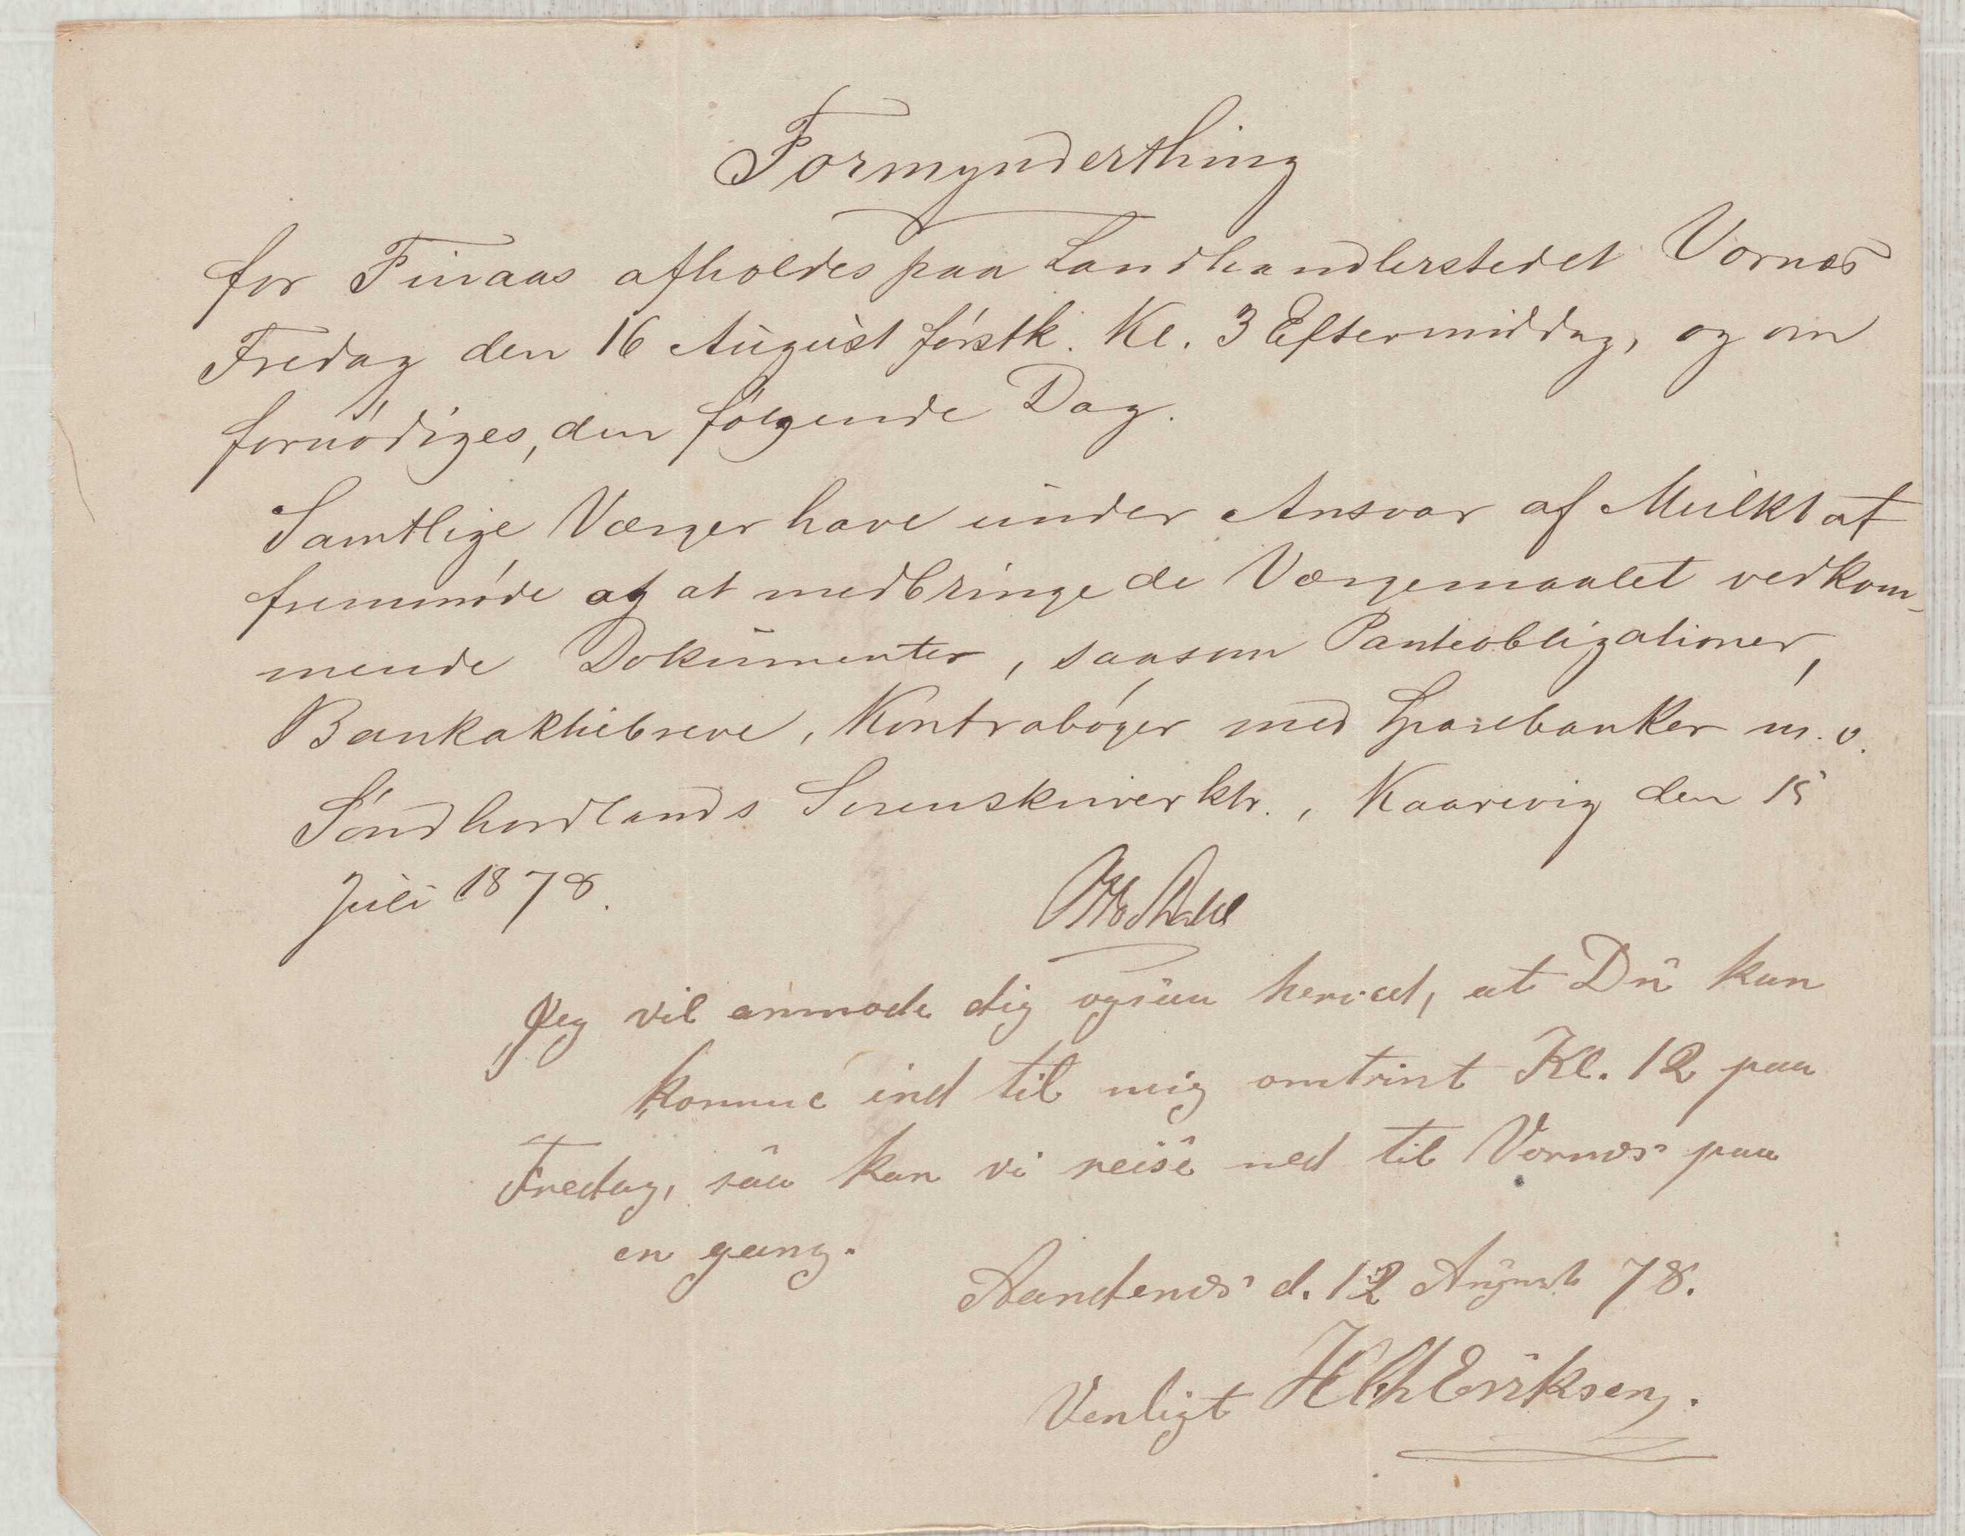 Formynderthing
for Finaas afholdes paa Landhandlerstedet Vornæs
Fredag den 16 August førstk. Kl. 3 Eftermiddag, og om
fornødiges, den følgende Dag.
Samtlige Værger have under Ansvar af Mulkt at
fremmøde og at medbringe de Værgemaalet vedkom-
mende Dokumenter, saasom Panteobligationer,
Bankaktiebreve, Kontrabøger med Sparebanker m. v.
Søndhordlands Sorenskriverktr., Kaarevig den 15
Juli 1878.
Jeg vil anmode dig ogsaa herved, at Du kan
komme ind til mig omtrint Kl. 12 paa
Fredag, saa kan vi reise ned til Vornæs paa
en gang.
d. 12 August 78.
Venligt H Chr Eriksen.